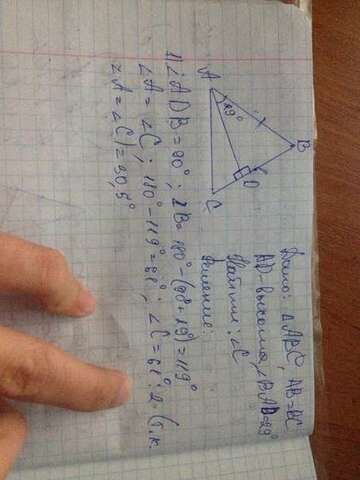 A
29°
B
D
C
Дано: △ABC, AB=BC
AD-высота, ∠BAD=29°
Найти: ∠C
Решение:
1) ∠ADB = 90°; ∠B= 180° - (90+29)=119°
∠A = ∠C; 180° - 119°=61°; ∠C = 61°:2 (т.к.
∠A = ∠C) = 30,5°